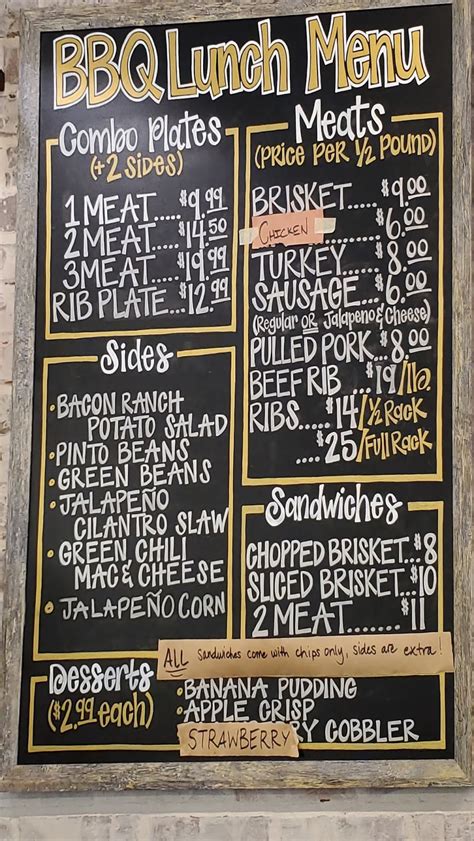 BBQ Lunch Menu
Combo Plates
(+2 SIDES)
1 MEAT.....$9.99
2 MEAT.....$14.50
3 MEAT.....$19.99
RIB PLATE...$12.99
Sides
•BACON RANCH
POTATO SALAD
•PINTO BEANS
•GREEN BEANS
•JALAPEÑO
CILANTRO SLAW
•GREEN CHILI
MAC & CHEESE
• JALAPEÑO CORN
Meats
(PRICE PER 1/2 POUND)
BRISKET....$9.00
CHICKEN ....$6.00
TURKEY....$8.00
SAUSAGE...$6.00
(Regular OR Jalapeno & Cheese)
PULLED PORK...$8.00
BEEF RIB ...$19/lb.
RIBS.....$14/½ Rack
....$25/Full Rack
Sandwiches
CHOPPED BRISKET...$8
SLICED BRISKET...$10
2 MEAT........$11
ALL Sandwiches come with chips only, sides are extra!
Desserts
($2.99 each)
•BANANA PUDDING
•APPLE CRISP
STRAWBERRY COBBLER